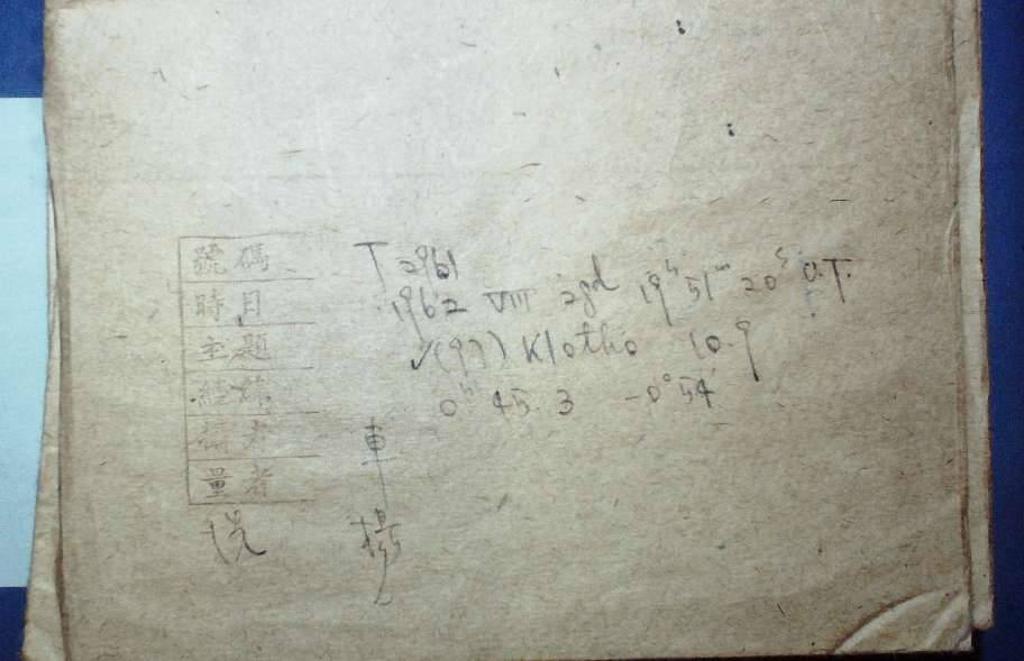 號碼 T 2961
時日 1962 VIII 29d 19h 51m 20s U.T.
主題 ✓(97) Klotho 10.9
0h 45.3 -0°54'
車
量者
洗 楊